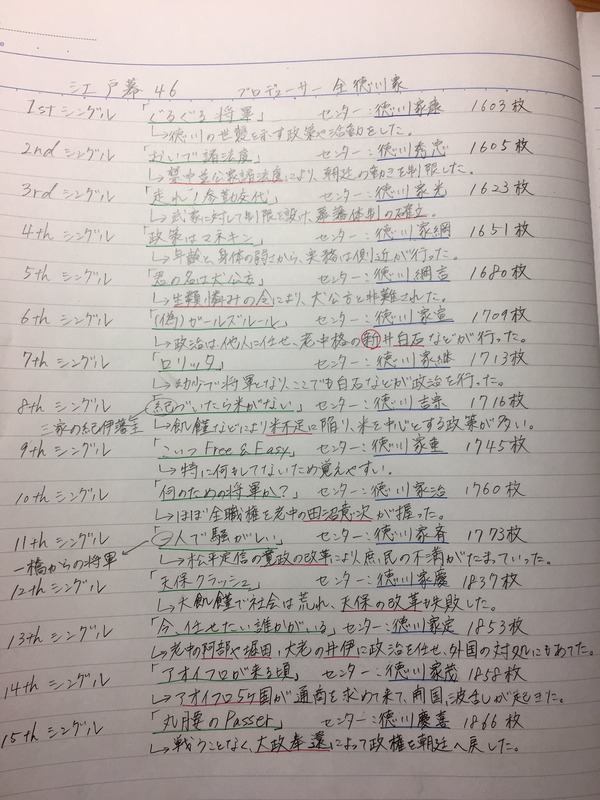 江戸幕46 プロデューサー 全徳川家
1stシングル 「ぐるぐる将軍」 センター:徳川家康 1603枚
↳徳川の世襲を示す政策や活動をした。
2ndシングル 「おいで諸法度」 センター:徳川秀忠 1605枚
↳禁中並公家諸法度により、朝廷の動きを制限した。
3rdシングル 「走れ!参勤交代」 センター:徳川家光 1623枚
↳武家に対して制限を設け、幕藩体制の確立。
4thシングル 「政策はマネキン」 センター:徳川家綱 1651枚
↳年齢と身体の弱さから、実務は側近が行った。
5thシングル 「君の名は犬公方」 センター:徳川綱吉 1680枚
↳生類憐みの令により、犬公方と非難された。
6thシングル 「(偽)ガールズルール」 センター:徳川家宣 1709枚
↳政治は他人に任せ、老中格の新井白石などが行った。
7thシングル 「ロリッタ」 センター:徳川家継 1713枚
↳幼少で将軍となり、ここでも白石などが政治を行った。
8thシングル 「紀づいたら米がない」 センター:徳川吉宗 1716枚
三家の紀伊藩主 ↳飢饉などにより米不足に陥り、米を中心とする政策が多い。
9thシングル 「こいつFree&Easy」 センター:徳川家重 1745枚
↳特に何もしてないため覚えやすい。
10thシングル 「何のための将軍か?」 センター:徳川家治 1760枚
↳ほぼ全職権を老中の田沼意次が握った。
11thシングル 「一人で騒がしい」 センター:徳川家斉 1773枚
一橋からの将軍 ↳松平定信の寛政の改革により庶民の不満がたまっていった。
12thシングル 「天保クラッシュ」 センター:徳川家慶 1837枚
↳大飢饉で社会は荒れ、天保の改革も失敗した。
13thシングル 「今、任せたい誰かがいる」 センター:徳川家定 1853枚
↳老中の阿部や堀田、大老の井伊に政治を任せ、外国の対処にもあてた。
14thシングル 「アオイフロが来る頃」 センター:徳川家茂 1858枚
↳アオイフロ5ヶ国が通商を求めて来て、開国に波生しが起きた。
15thシングル 「丸腰のPasser」 センター:徳川慶喜 1866枚
↳戦うことなく、大政奉還によって政権を朝廷へ戻した。